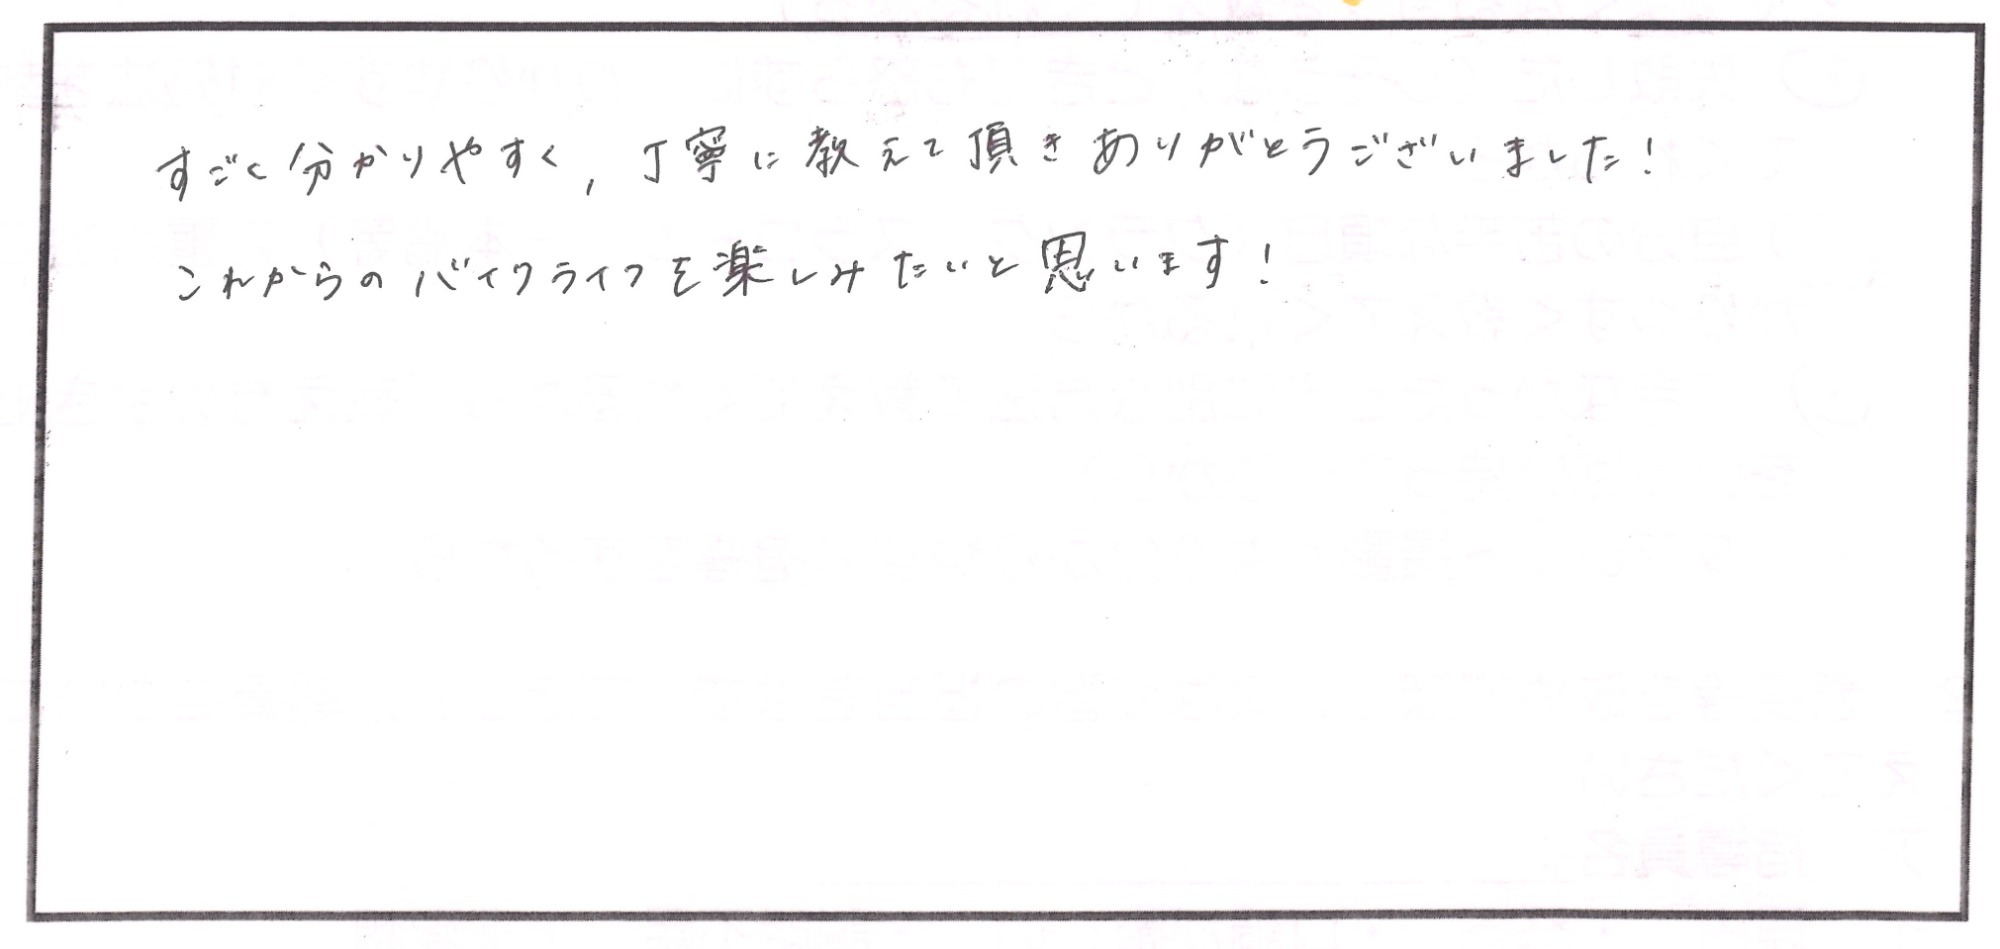 すごく分かりやすく，丁寧に教えて頂きありがとうございました！
これからのバイクライフを楽しみたいと思います！